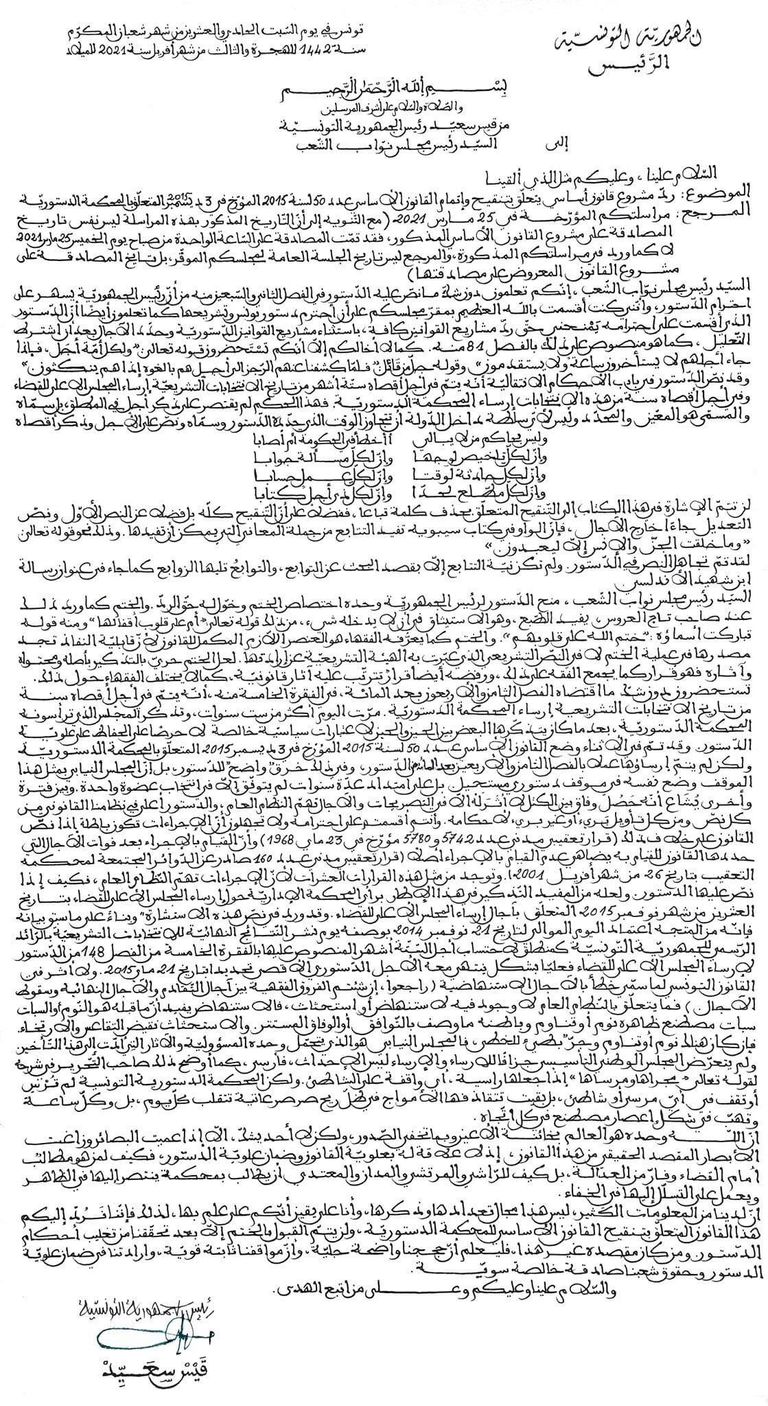 الجمهورية التونسية
الرئيس
تونس في يوم السبت الحادي والعشرين من شهر شعبان المكرّم
سنة 1442 للهجرة والثالث من شهر أفريل سنة 2021 للميلاد
بسم الله الرّحمن الرّحيم
والصّلاة والسّلام على أشرف المرسلين
من قيس سعيّد رئيس الجمهورية التونسيّة
إلى
السيّد رئيس مجلس نواب الشّعب
السّلام علينا، وعليكم مثل الذي ألقينا
الموضوع: ردّ مشروع قانون أساسي يتعلّق بتنقيح وإتمام القانون الأساسي عدد 50 لسنة 2015 المؤرّخ في 3 ديسمبر 2015 المتعلّق بالمحكمة الدستوريّة
المرجع: مراسلتكم المؤرّخة في 25 مارس 2021 (مع التنويه إلى أنّ التّاريخ المذكور بهذه المراسلة ليس نفس تاريخ
المصادقة على مشروع القانون الأساسي المذكور، فقد تمّت المصادقة على السّاعة الواحدة من صباح يوم الخميس 25 مارس 2021
لا كما ورد في مراسلتكم المذكورة، والمرجع ليس تاريخ الجلسة العامة لمجلسكم الموقّر، بل تاريخ المصادقة على
مشروع القانون المعروض على مصادقتها)
السيّد رئيس مجلس نوّاب الشّعب، إنّكم تعلمون دون شكّ ما نصّ عليه الدستور في الفصل الثاني والسّبعين منه من أنّ رئيس الجمهوريّة يسهر على
احترام الدّستور، وأنّني كنت أقسمت بالله العظيم بمقرّ مجلسكم على أن أحترم دستور تونس وتشريعها كما تعلمون أيضا أنّ الدّستور
الذي أقسمت على احترامه يمنحني حقّ ردّ مشاريع القوانين كافة، باستثناء مشاريع القوانين الدّستوريّة وحدد الآجال بعد أن اشترط
التعليل، كما هو منصوص على ذلك بالفصل 81 منه. كما لا أخالكم إلاّ أنّكم تستحضرون قوله تعالى "ولكلّ أمّة أجل، فإذا
جاء أجلهم لا يستأخرون ساعة ولا يستقدمون" وقوله جلّ من قائل: "فلمّا كشفنا عنهم الرّجز إلى أجل هم بالغوه إذا هم ينكثون"
وقد نصّ الدّستور في باب الأحكام الانتقاليّة أنّه يتمّ في أجل أقصاه ستّة أشهر من تاريخ الانتخابات التشريعيّة إرساء المجلس الأعلى للقضاء
وفي أجل أقصاه سنة من هذه الانتخابات إرساء المحكمة الدستوريّة. فهذا الحكم لم يقتصر على ذكر أجل في المطلق بل سمّاه
والمسمّى هو المعيّن والمحدّد وليس لأيّ سلطة داخل الدولة أن تتجاوز الوقت الذي حدده الدّستور وسمّاه ونصّ على الأجل وذكر أقصاه
وليس يحاكم من لا يبالي أأخطأ في الحكومة أم أصابا
وإنّ لكلّ تلخيص لوجها وإنّ لكلّ مسألة جوابا
وإنّ لكلّ حادثة لوقتا وإنّ لكلّ عمل حسابا
وإنّ لكلّ مطّلع لحدّا وإنّ لكلّ ذي أجل كتابا
لن تتمّ الإشارة في هذا الكتاب إلى التنقيح المتعلّق بحذف كلمة تباعا، ففضلا على أنّ التنقيح كلّه بل فضلا عن النصّ الأوّل ونصّ
التعديل جاءا خارج الآجال، فإنّ الواو في كتاب سيبويه تفيد التتابع من جملة المعاني التي يمكن أن تفيدها. وذلك نحو قوله تعالى
"وما خلقت الجنّ والإنس إلاّ ليعبدون"
لقد تمّ تجاهل النصّ في الدّستور. ولم تكن نيّة التتابع إلاّ بقصد البحث عن التوابع، والتوابع تليها الزوابع كما جاء في عنوان رسالة
ابن شهيد الأندلسي
السيّد رئيس مجلس نواب الشّعب، منح الدّستور لرئيس الجمهوريّة وحده اختصاص الختم وخوّل له حقّ الردّ. والختم كما ورد ذلك
عند صاحب تاج العروس، يفيد الطبع، وهو الاستيثاق في أن لا يدخله شيء، من ذلك قوله تعالى "أم على قلوب أقفالها" ومنه قوله
تباركت أسماؤه "ختم الله على قلوبهم". والختم كما يعرّفه الفقهاء هو العنصر اللازم المكمل للقانون لأنّ قابليّة النفاذ تجد
مصدرها في عملية الختم لا في النصّ التشريعي الذي عبّرت به الهيئة التشريعيّة عن إرادتها. لعلّ الختم حريّ بالتذكير بأصله ومحتواه
وآثاره فهو قرار كما يجمع الفقه على ذلك، ورفضه أيضا قرار تترتّب عليه آثار قانونيّة. كما لا يختلف الفقهاء حول ذلك.
تستحضرون دون شكّ ما اقتضاه الفصل الثامن والأربعون بعد المائة، في الفقرة الخامسة منه، أنّه يتمّ في أجل أقصاه سنة
من تاريخ الانتخابات التشريعية إرساء المحكمة الدستوريّة. مرّت اليوم أكثر من ستّ سنوات، وتذكّر المجلس الذي ترأسونه
المحكمة الدّستوريّة، بعد ما كان يتذكّرها البعض بين الحين والحين لاعتبارات سياسيّة خالصة لا حرصا على الحفاظ على علوية
الدّستور. وقد تمّ في الأثناء وضع القانون الأساسي عدد 50 لسنة 2015 المؤرّخ في 3 ديسمبر 2015 المتعلّق بالمحكمة الدستوريّة
ولكن لم يتمّ إرساؤها عملا بالفصل الثامن والأربعين بعد المائة من الدّستور، وفي ذلك خرق واضح للدّستور، بل إنّ المجلس النيابي بمثل هذا
الموقف وضع نفسه في موقف دستوري مستحيل بل على امتداد عدّة سنوات لم يتوفّق إلاّ في انتخاب عضوة واحدة. وبين فترة
وأخرى يُشاع أنّه حصل وفاق بين الكتل لا أثر له إلاّ في التصريحات والآجال تهمّ النظام العام، والدّستور أعلى في نظامنا القانوني من
كلّ نصّ ومن كلّ تأويل بريء أو غير بريء لأحكامه. وأنتم أقسمتم على احترامه ولا تجهلون أنّ الإجراءات تكون باطلة إذا نصّ
القانون على خلاف ذلك (قرار تعقيبي مدني عدد 5742 و 5780 مؤرّخ في 23 ماي 1968) وأنّ القيام بالإجراء بعد فوات الآجال التي
حددها القانون للقيام به يضاهي عدم القيام بالإجراء أصلا (قرار تعقيبي مدني عدد 160 صادر عن الدّوائر المجتمعة لمحكمة
التعقيب بتاريخ 26 من شهر أفريل 2001). وتوجد من مثل هذه القرارات العشرات لأنّ الإجراءات تهمّ النظام العام، فكيف إذا
نصّ عليها الدستور. ولعلّه من المفيد التذكير في هذا الإطار برأي المحكمة الإداريّة حول إرساء المجلس الأعلى للقضاء بتاريخ
العشرين من شهر نوفمبر 2015 المتعلّق بآجال إرساء المجلس الأعلى للقضاء. وقد ورد في نصّ هذه الاستشارة "وبناء على ما سبق بيانه
فإنّه من المتّجه اعتماد اليوم الموالي لتاريخ 21 نوفمبر 2014 بوصفه يوم نشر النتائج النهائيّة للانتخابات التشريعيّة بالرّائد
الرسمي للجمهوريّة التونسيّة كمنطلق لاحتساب أجل الستّة أشهر المنصوص عليها بالفقرة الخامسة من الفصل 148 من الدّستور
لإرساء المجلس الأعلى للقضاء فعليّا بشكل ينتهي معه الأجل الدستوري الأقصى تحديدا بتاريخ 21 ماي 2015. ولا أثر في
القانون التونسي لما سمّي خطأ بالآجال الاستنهاضيّة (راجعوا، إن شئتم الفروق الفقهية بين آجال التّقادم والآجال النهائية وسقوط
الآجال) فما يتعلّق بالنّظام العام لا وجود فيه لاستنهاض أو استحثاث، فالاستنهاض يفيد أنّ ما قبله هو النّوم أو السّبات
سبات مصطنع ظاهره نوم أو تناوم وباطنه ما وصف بالتّوافق أو الوفاق المستتر. والاستحثاث نقيض التقاعس والارتخاء.
فإن كان هنالك نوم أو تناوم وجرّ بطيء للخطى، فالمجلس النيابي هو الذي يتحمّل وحده المسؤوليّة والآثار التي أدّت إلى هذا التّأخير
ولم يتعرّض المجلس الوطني التأسيسي جزافا للإرساء والإرساء ليس الإحداث، فأرسى كما أوضح ذلك صاحب التّحرير في شرحه
لقوله تعالى "مجراها ومرساها" إذا جعلها راسية، أي واقفة على الشّاطئ. ولكنّ المحكمة الدستورية التونسية لم تُرْسَ
أو تقف في أيّ مرسى أو شاطئ، بل بقيت تتقاذفها الأمواج في ظلّ ريح صرصر عاتية تتقلّب كلّ يوم، بل وكلّ ساعة
وتهبّ في شكل إعصار مصطنع في كلّ اتّجاه.
إنّ اللّه وحده هو العالم بخائنة الأعين وبما تخفي الصّدور، ولكن لا أحد يشكّ، إلاّ إذا عميت البصائر وزاغت
الأبصار المقصد الحقيقي من هذا القانون، إذ لا علاقة له بعلويّة القانون وضمان علويّة الدّستور، فكيف لمن هو مطالب
أمام القضاء وفارّ من العدالة، بل كيف للرّاشي والمرتشي والمدان والمعتدي أن يطالب بمحكمة ينتصر إليها في الظّاهر
ويعمل على التسلّل إليها في الخفاء.
إنّ لدينا من المعلومات الكثير، ليس هذا مجال تعدادها وذكرها، وأنا على يقين أنّكم على علم بها، لذلك فإنّنا نردّ إليكم
هذا القانون المتعلّق بتنقيح القانون الأساسي للمحكمة الدستوريّة، ولن يتمّ القبول بالختم إلاّ بعد تحقّقنا من تغليب أحكام
الدستور. ومن كان مقصده غير هذا، فليعلم أنّ حججنا واضحة جليّة، وأنّ مواقفنا ثابتة قويّة، وإرادتنا في ضمان علويّة
الدستور وحقوق شعبنا صادقة خالصة سويّة.
والسّلام علينا وعليكم وعلى من اتّبع الهدى.
رئيس الجمهورية التونسية
قيس سعيّد